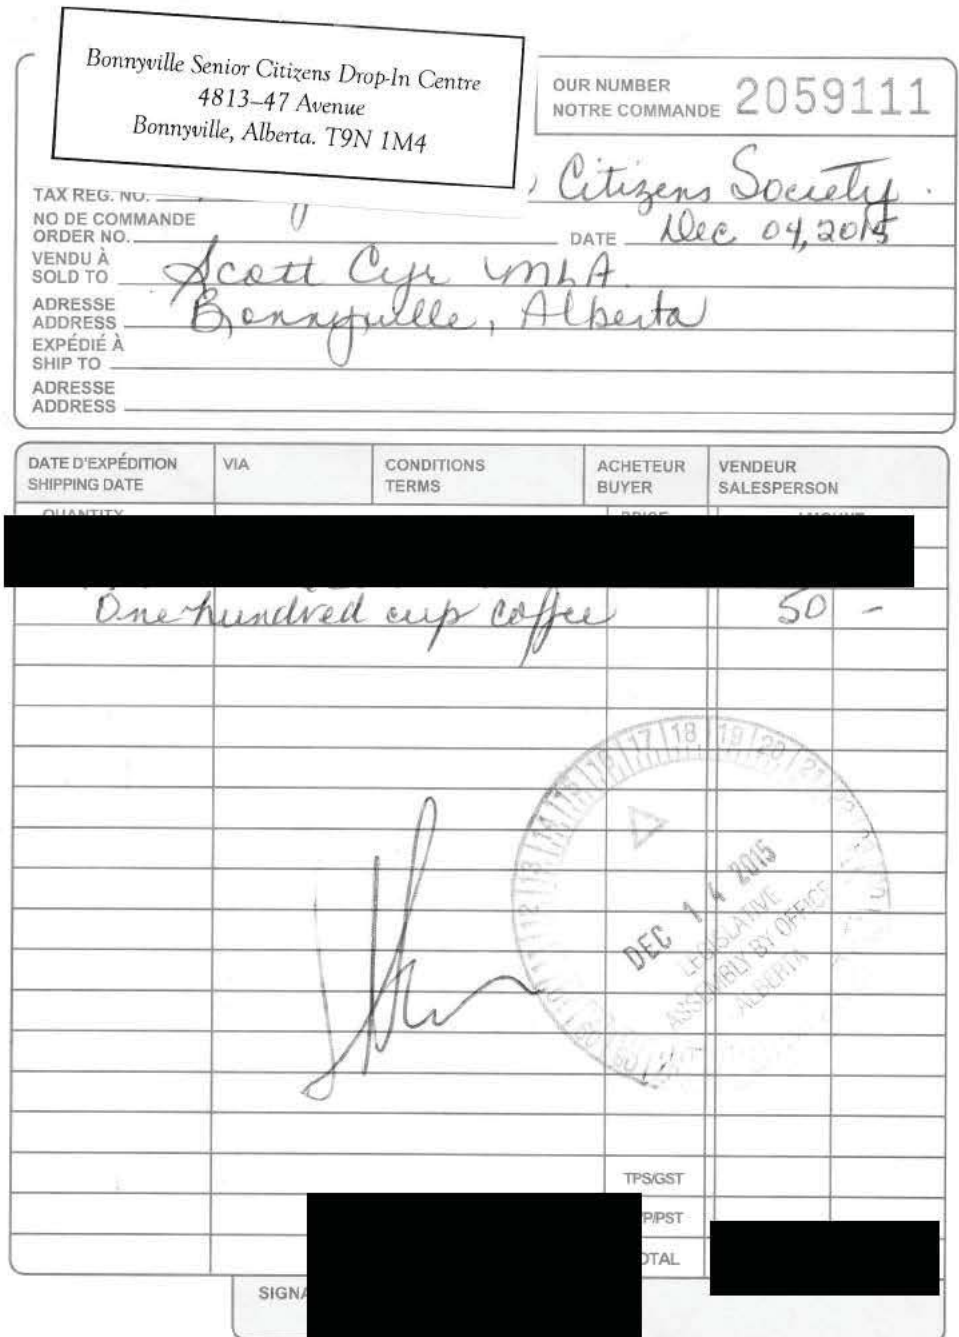 Bonnyville Senior Citizens Drop-In Centre
4813–47 Avenue
Bonnyville, Alberta. T9N 1M4
OUR NUMBER
NOTRE COMMANDE 2059111
Citizens Society.
TAX REG. NO.
NO DE COMMANDE
ORDER NO.
DATE Dec 04, 2015
VENDU À
SOLD TO Scott Cyr MLA
ADRESSE
ADDRESS Bonnyville, Alberta
EXPÉDIÉ À
SHIP TO
ADRESSE
ADDRESS
DATE D'EXPÉDITION VIA CONDITIONS ACHETEUR VENDEUR
SHIPPING DATE TERMS BUYER SALESPERSON
QUANTITY PRICE AMOUNT
One hundred cup coffee 50 -
17 18 19 20 21
DEC 14 2015
LEGISLATIVE
ASSEMBLY BY OFFICE
ALBERTA
TPS/GST
P/PST
OTAL
SIGNA